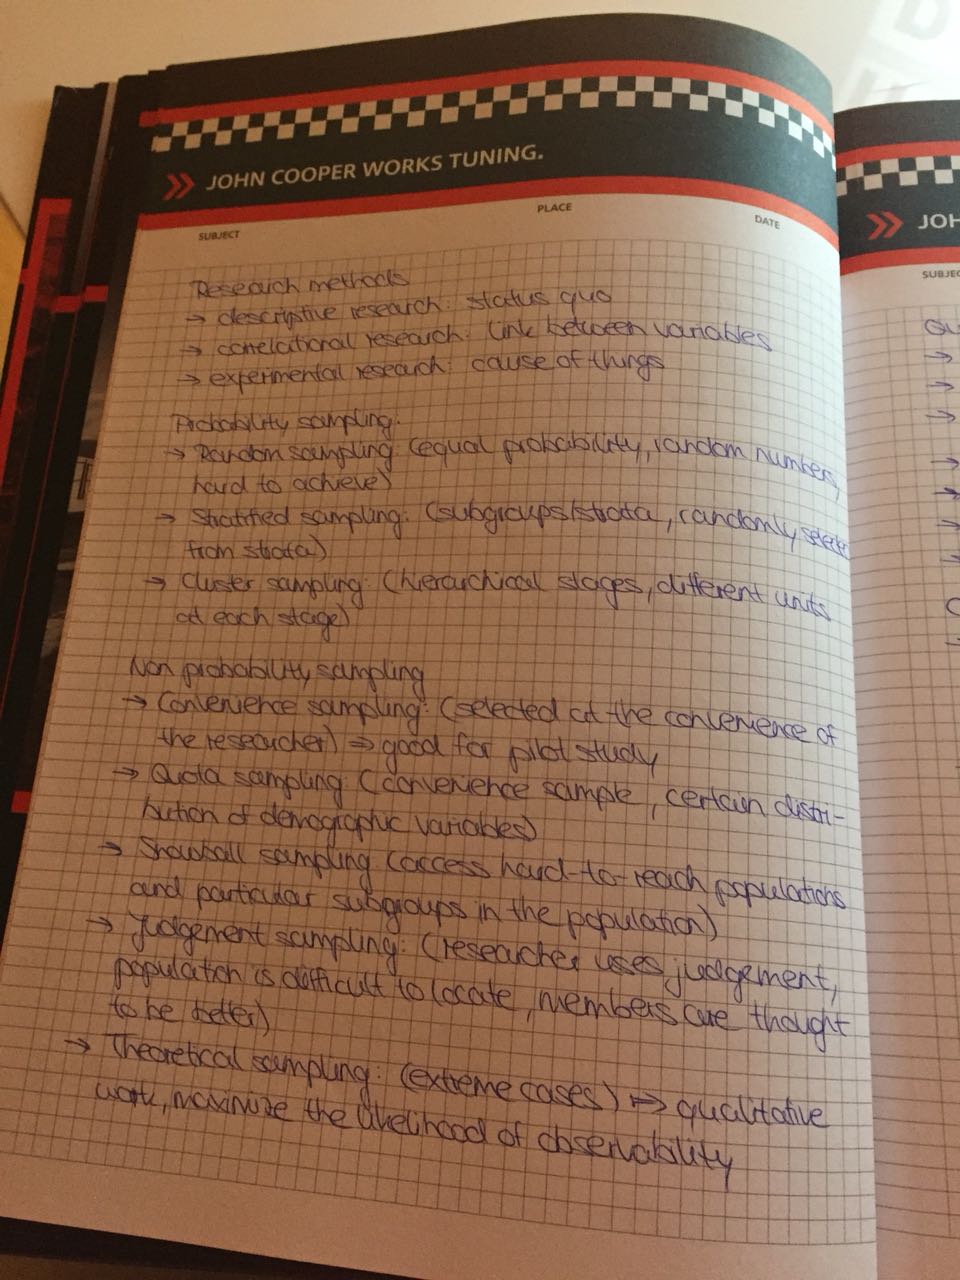 JOHN COOPER WORKS TUNING.
SUBJECT PLACE DATE
Research methods
→ descriptive research: status quo
→ correlational research: link between variables
→ experimental research: cause of things
Probability sampling:
→ Random sampling (equal probability, random numbers,
hard to achieve)
→ Stratified sampling: (subgroups/strata, randomly selected
from strata)
→ Cluster sampling: (hierarchical stages, different units
at each stage)
Non probability sampling
→ Convenience sampling: (selected at the convenience of
the researcher) ⇒ good for pilot study
→ Quota sampling: (convenience sample, certain distri-
bution of demographic variables)
→ Snowball sampling (access hard-to-reach populations
and particular subgroups in the population)
→ Judgement sampling: (researcher uses judgement,
population is difficult to locate, members are thought
to be better)
→ Theoretical sampling: (extreme cases) ⇒ qualitative
work, maximize the likelihood of observability
JOH
SUBJEC
Qu
→
→
→
→
→
→
→